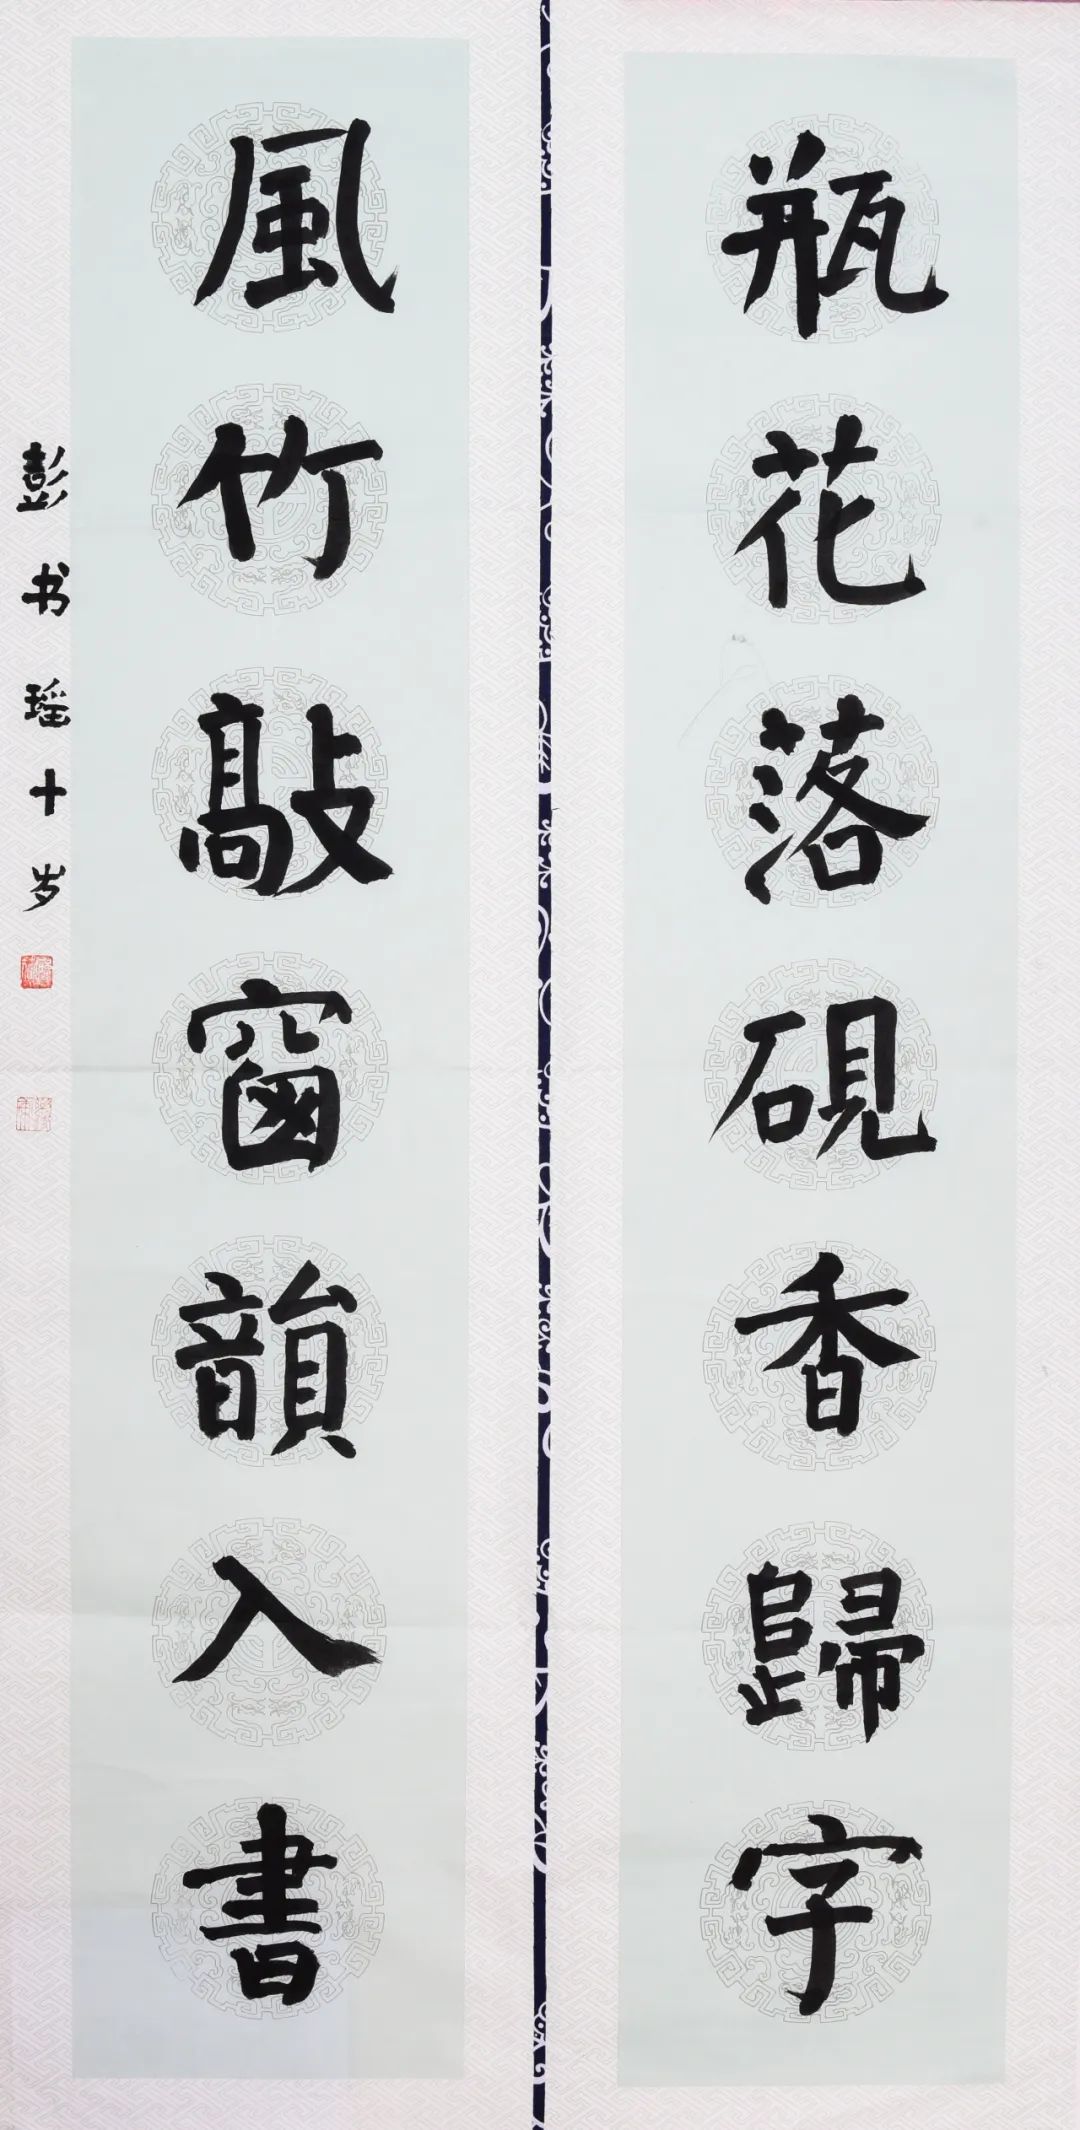 瓶花落硯香歸字
風竹敲窗韻入書
彭书瑶十岁